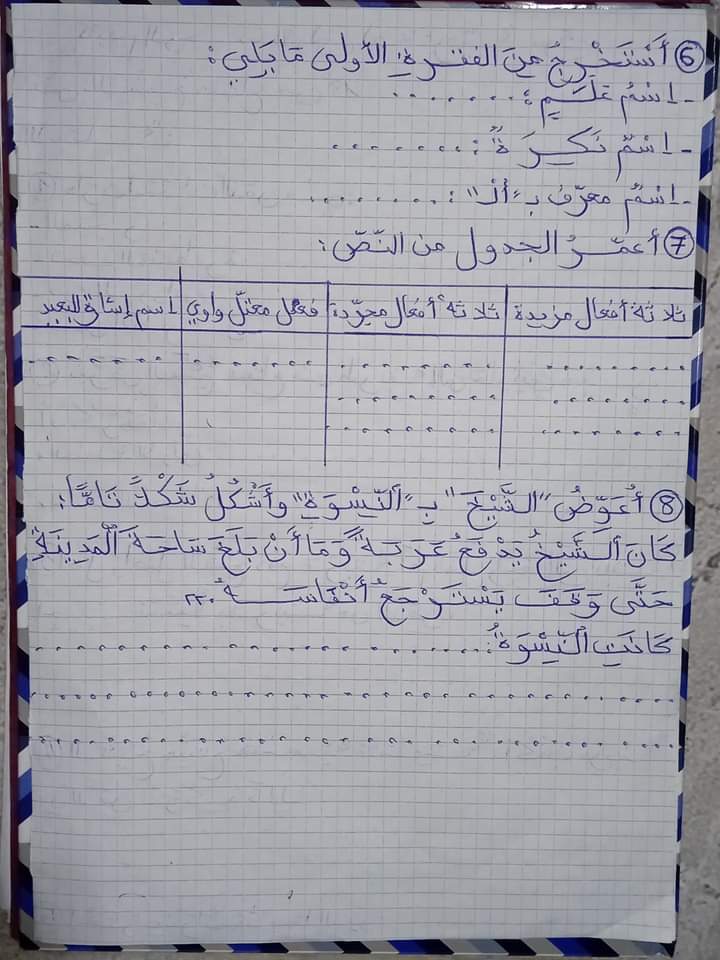 ⑥ أَسْتَخْرِجُ مِنَ الفقرةِ الأولى مَا يَلِي:
- اسْمُ عَلَمٍ: . . . . . . .
- اسْمٌ نَكِرَةٌ: . . . . . . .
- اسْمٌ معرّف بـ "أَلْ": . . . . . . .
⑦ أعمّرُ الجدول من النّصّ:
ثلاثة أفعال مزيدة | ثلاثة أفعال مجرّدة | فعل معتلّ واوي | اسم إشارة للبعيد
⑧ أُعَوِّضُ "الشَّيْخَ" بِـ "النِّسْوَةِ" وأَشْكُلُ شَكْلاً تَامًّا:
كَانَ الشَّيْخُ يَدْفَعُ عَرَبَةً وَمَا أَنْ بَلَغَ سَاحَةَ الْمَدِينَةِ
حَتَّى وَقَفَ يَسْتَرْجِعُ أَنْفَاسَهُ...
كَانَتِ النِّسْوَةُ: . . . . . . .